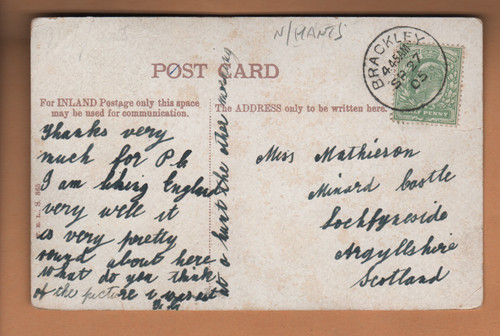 N/HANTS
POST CARD
BRACKLEY
4.45AM
SP 27
05
For INLAND Postage only this space
may be used for communication.
The ADDRESS only to be written here.
Thanks very
much for P.C
I am liking England
very well it
is very pretty
round about here
What do you think
of the picture I was out
at a hunt the other morning
Miss Mathieson
Minard Castle
Lochfyneside
Argyllshire
Scotland
PENNY